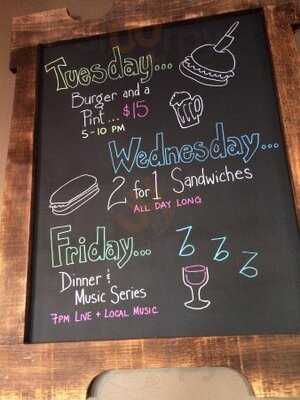 Tuesday...
Burger and a
Pint... $15
5-10 PM
Wednesday...
2 for 1 Sandwiches
ALL DAY LONG
Friday...
Dinner &
Music Series
7PM LIVE + LOCAL MUSIC